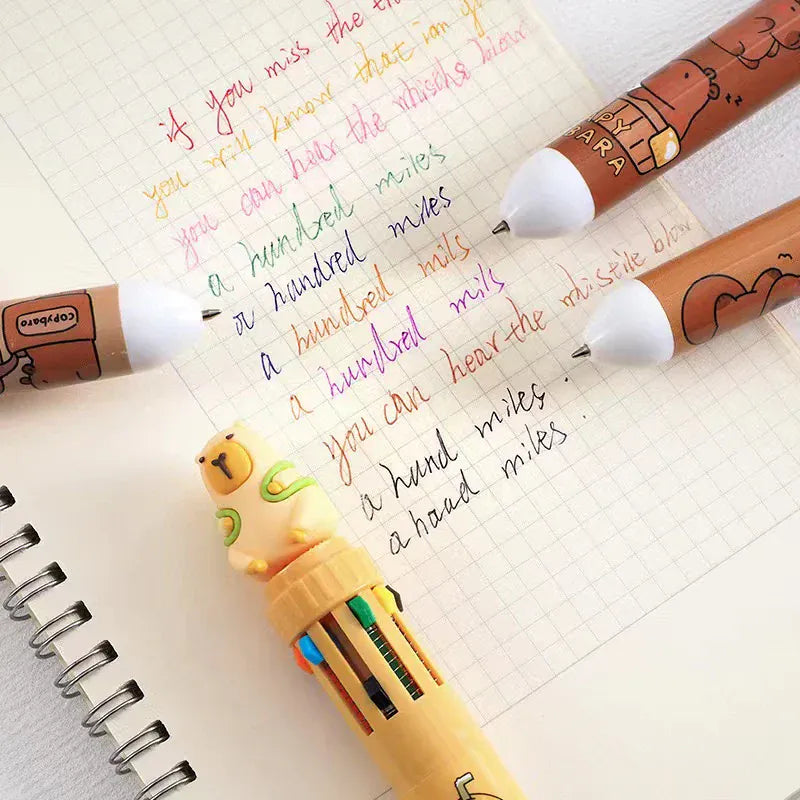 if you miss the
you will know that im
you can hear the whistle blow
a hundred miles
a handred miles
a hundred mils
a hundred mils
you can hear the whistile blow
a hund miles.
a houd miles.
BARA
COPYbaro